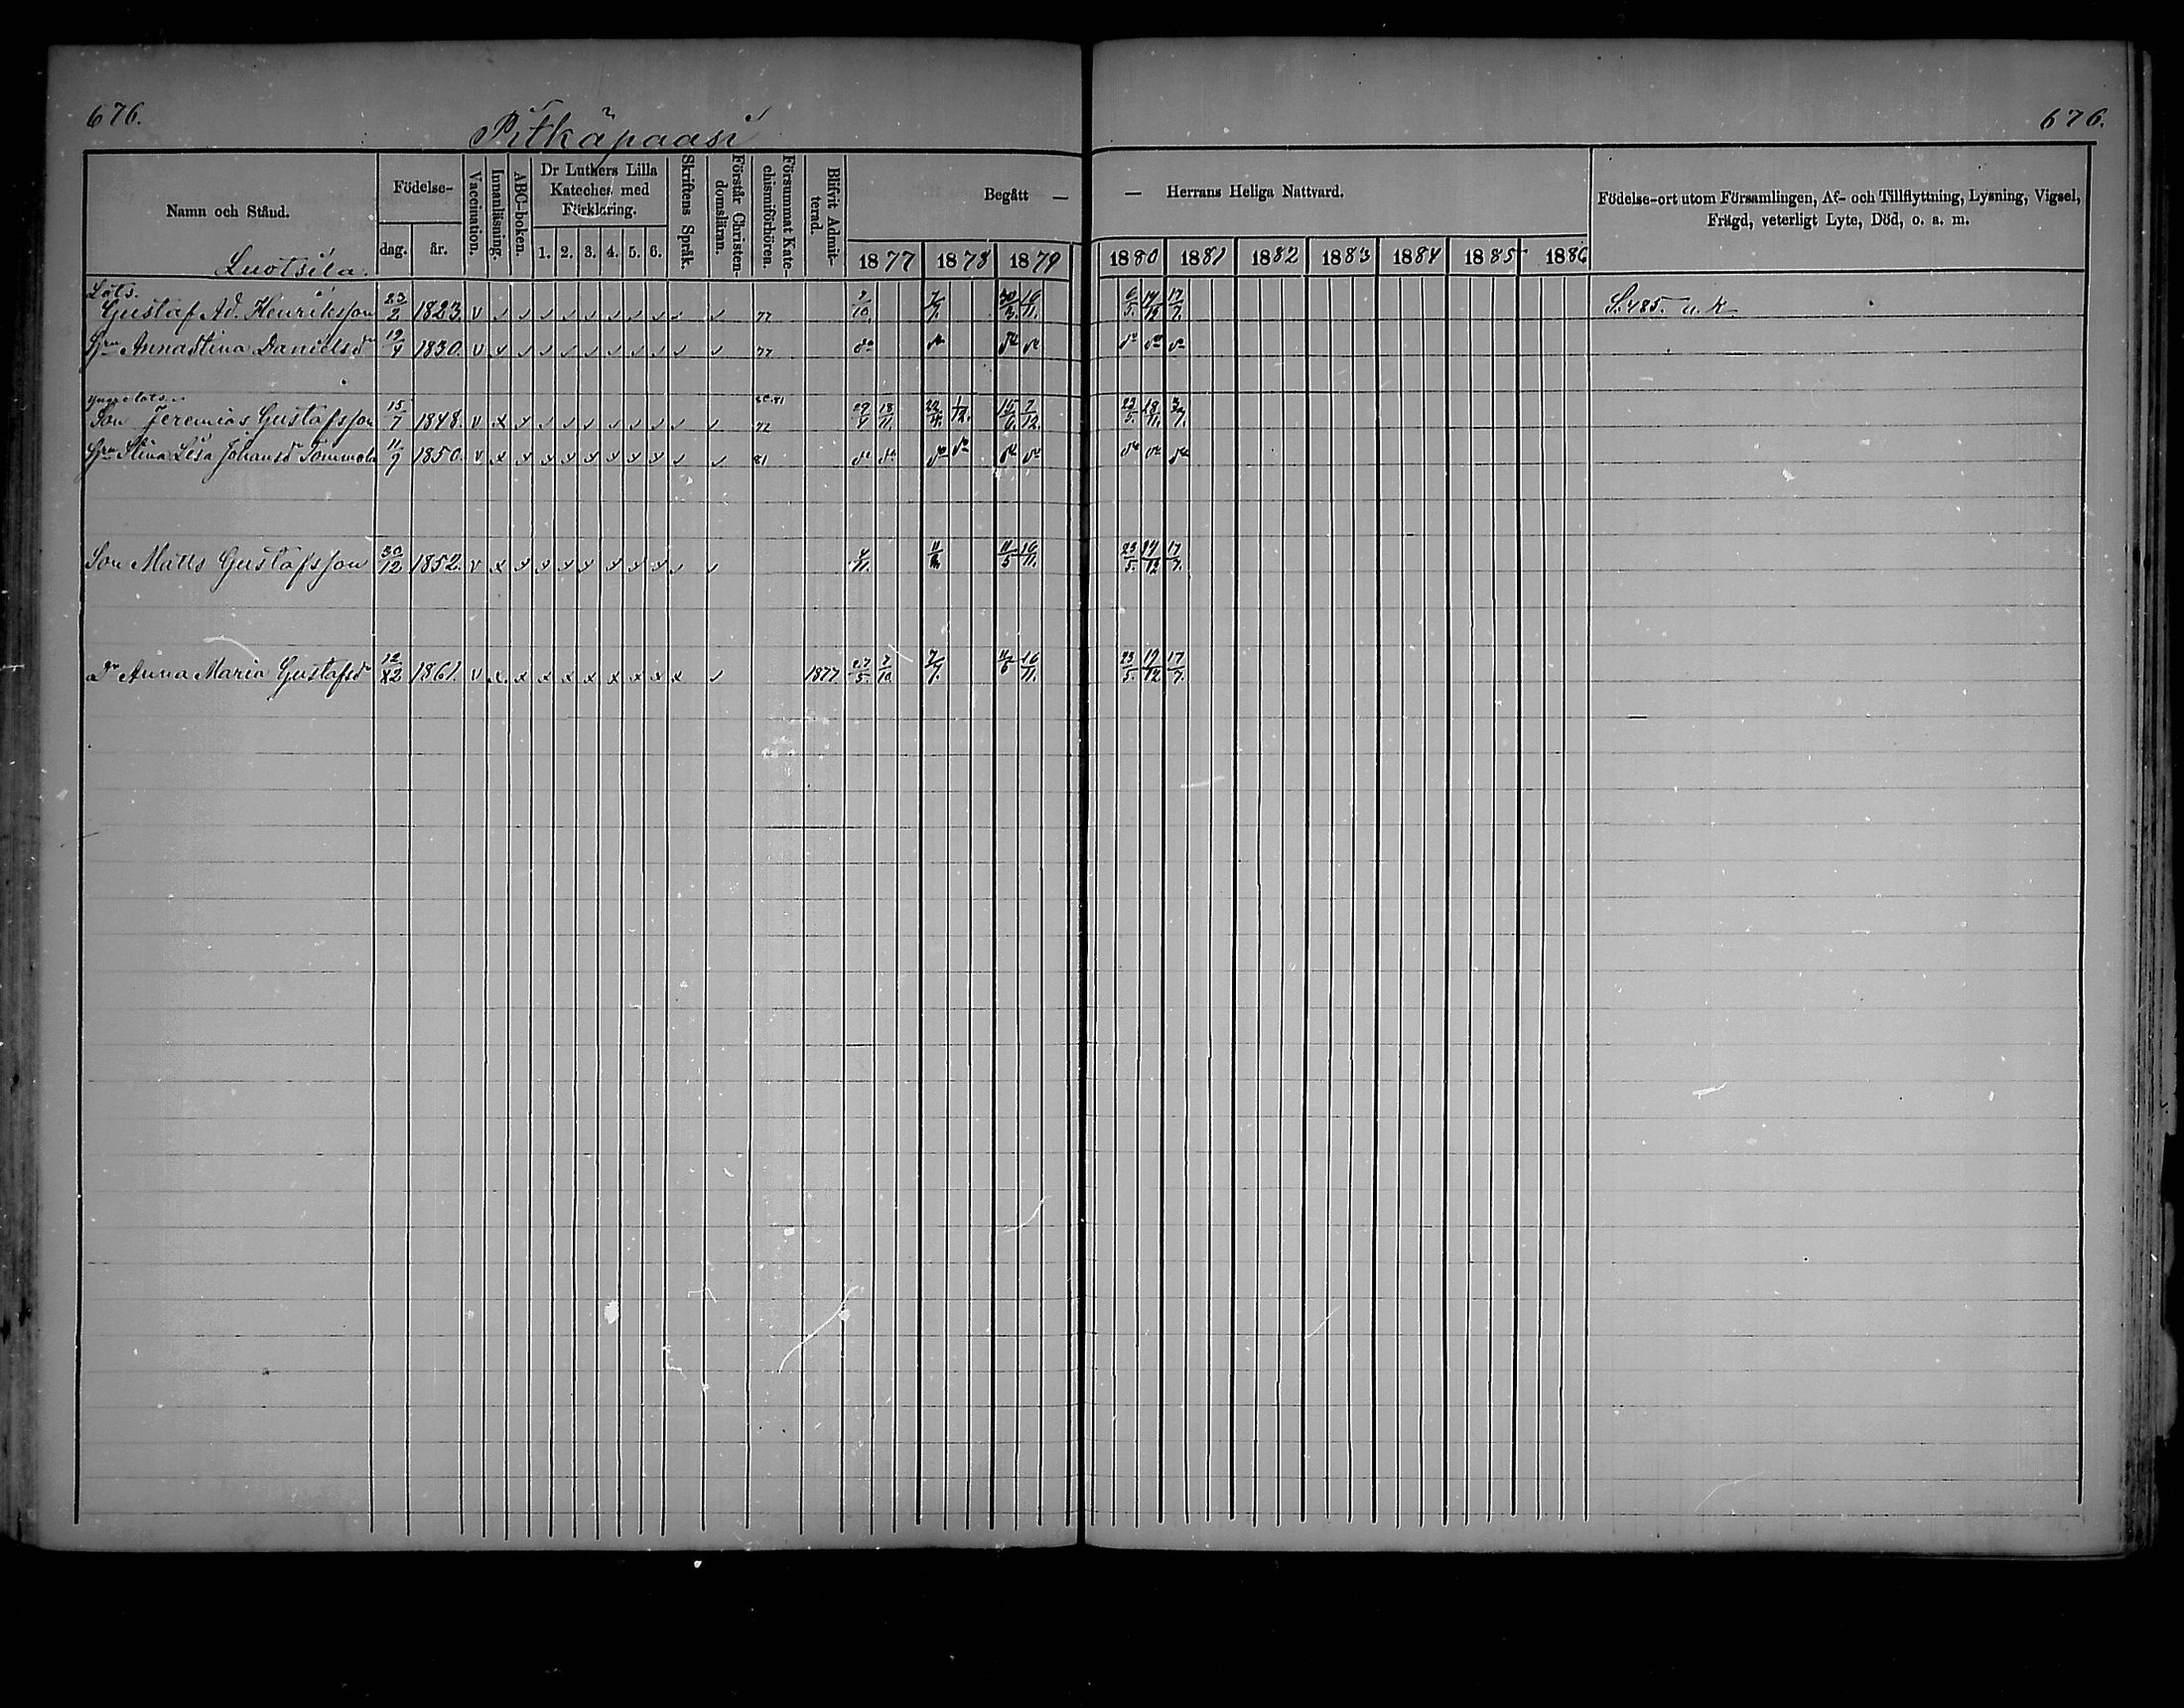 676.
Pitkäpaasi
676.
Namn och Stånd.
Födelse-
dag.
år.
Vaccination.
Innanläsning.
ABC-boken.
Dr Luthers Lilla
Kateches med
Förklaring.
1. 2. 3. 4. 5. 6.
Skriftens Språk.
Förstår Christen-
domsläran.
Försummat Kate-
chismiförhören.
Blifvit Admit-
terad.
Begått —
— Herrans Heliga Nattvard.
1877 1878 1879 1880 1881 1882 1883 1884 1885 1886
Födelse-ort utom Församlingen, Af- och Tillflyttning, Lysning, Vigsel,
Frägd, veterligt Lyte, Död, o. a. m.
Luotsila.
Lots.
Gustaf Ad. Henriksson 23/2 1823. v 77 7/10. 7/7. 30/3. 16/11. 6/5. 17/7. S. 485. n. k
Hru Annastina Danielsdr 19/9 1830. v 77 do do do do do do do
yngre lots.
Son Jeremias Gustafsson 15/7 1848. v 77 29/4 18/11. 15/6. 7/12. 23/5. 28/11. 3/7.
80.81
Hru Stina Lisa Johansdr Tommola 11/9 1850. v 81 do do do do do do do do do
Son Matts Gustafsson 30/12 1852. v 4/11. 11/5 16/11. 23/5. 14/12 17/7.
Dr Anna Maria Gustafsdr 12/12 1861. v 1877. 27/5. 7/10 7/7. 11/5 16/11. 23/5. 19/12 17/7.